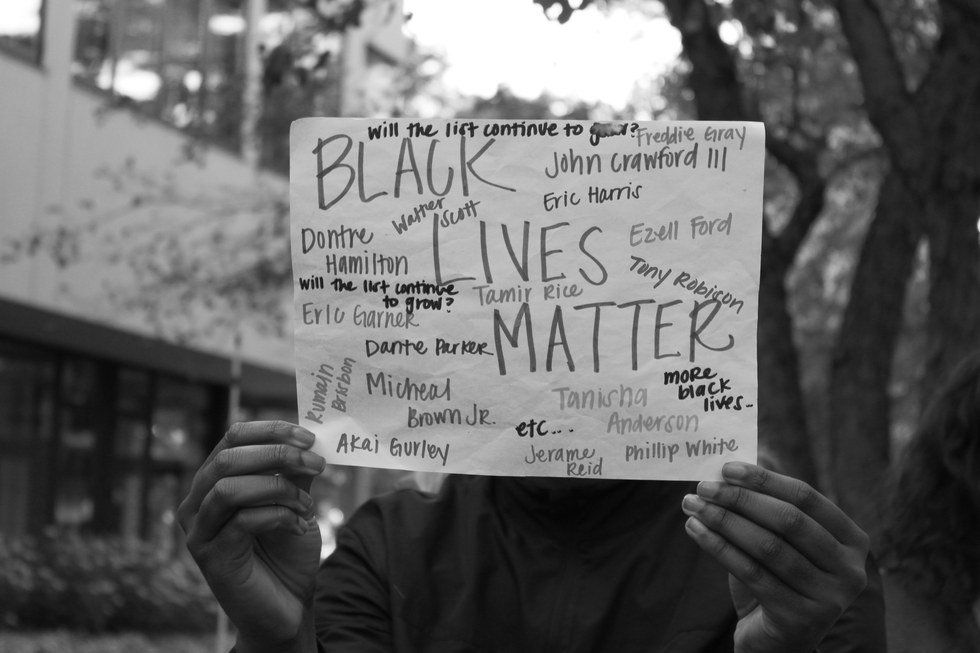 will the list continue to grow?
Freddie Gray
BLACK
John Crawford III
Eric Harris
Walter
Scott
Dontre
Hamilton
LIVES
Ezell Ford
Tony Robison
will the list continue
to grow?
Tamir Rice
Eric Garner
MATTER
Dante Parker
Rumain
Brisbon
Micheal
Brown Jr.
Tanisha
Anderson
more
black
lives..
etc...
Akai Gurley
Jerame
Reid
Phillip White